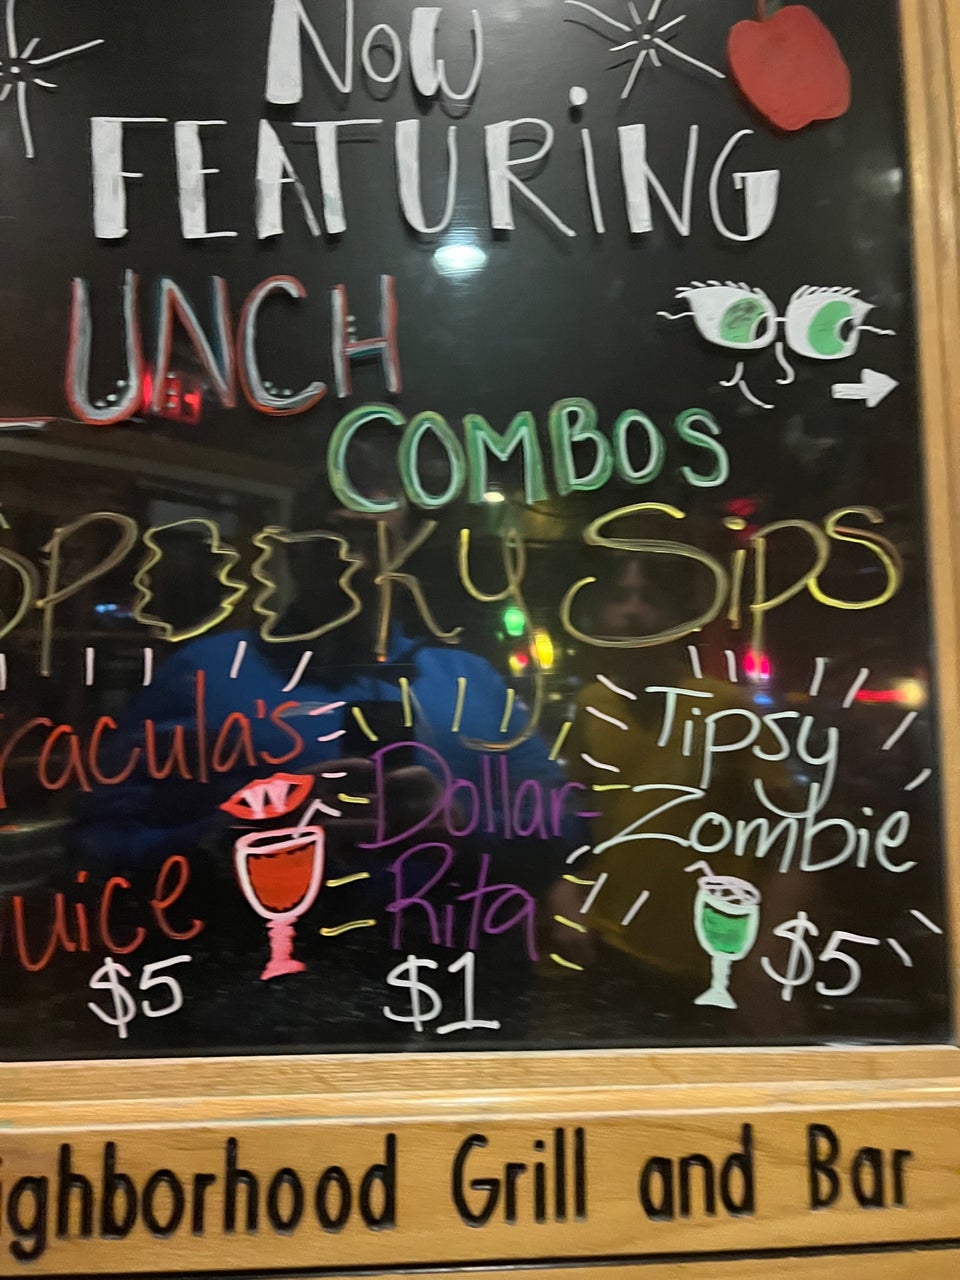 Now
FEATURiNG
LUNCH
COMBOS
SPOOKY Sips
racula's
uice
$5
Dollar-
Rita
$1
Tipsy
Zombie
$5
ighborhood Grill and Bar